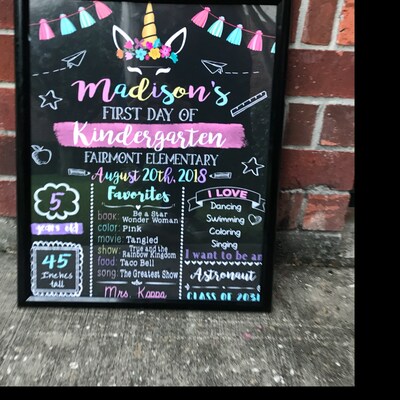 Madison's
FIRST DAY OF
Kindergarten
FAIRMONT ELEMENTARY
August 20th, 2018
5
years old
45
Inches
tall
Favorites
book: Be a Star
Wonder Woman
color: Pink
movie: Tangled
show: True and the
Rainbow Kingdom
food: Taco Bell
song: The Greatest Show
Mrs. Kappa
I LOVE
Dancing
Swimming
Coloring
Singing
I want to be an
Astronaut
CLASS OF 2031